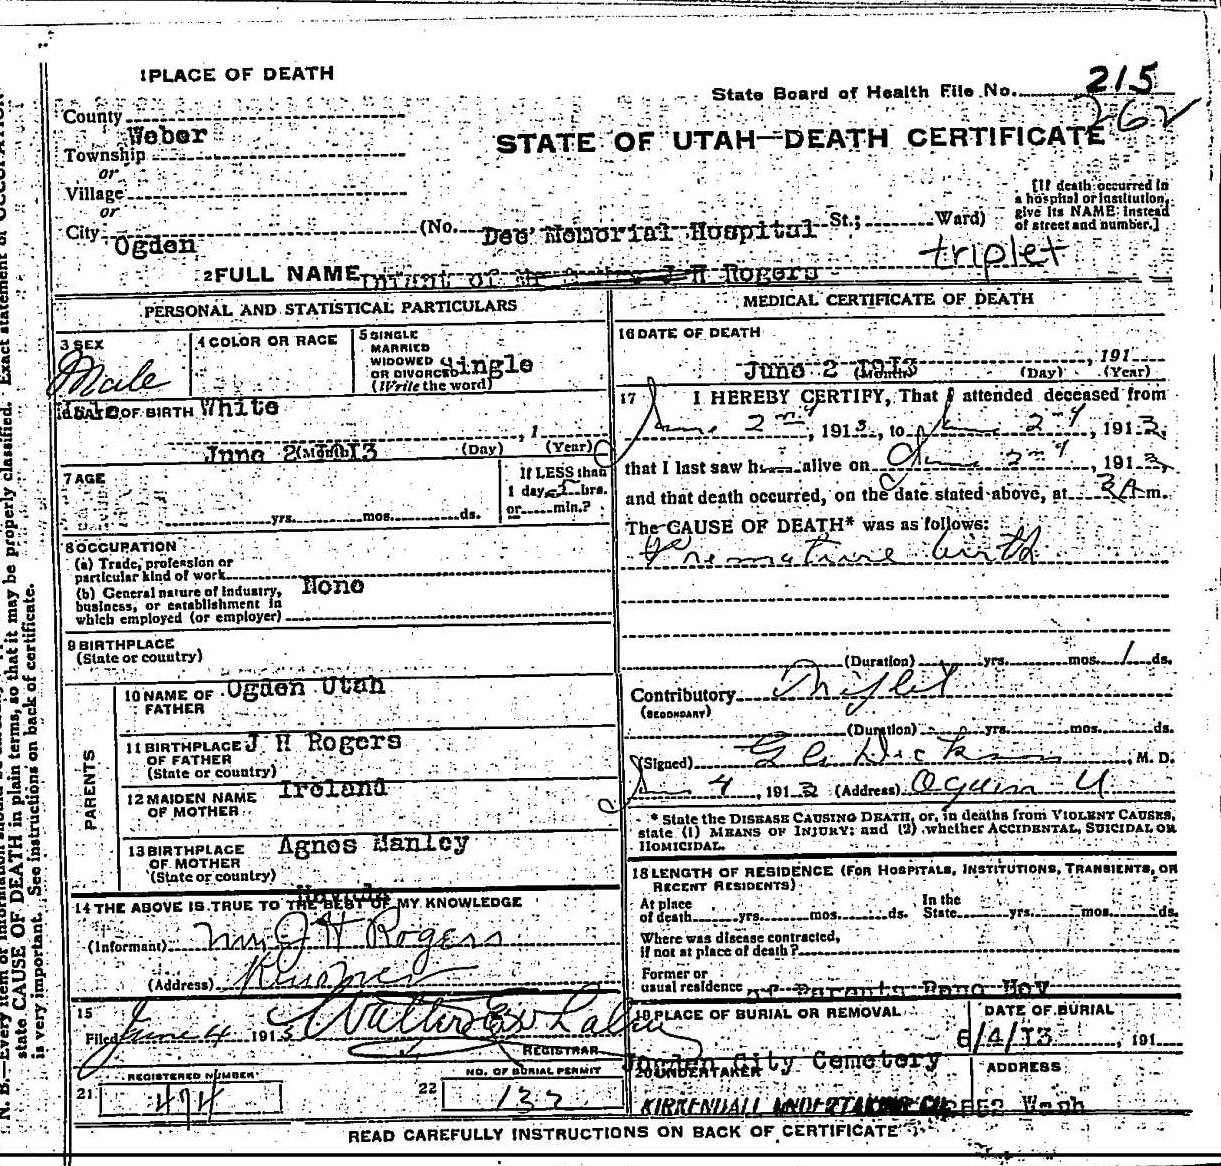 1 PLACE OF DEATH
State Board of Health File No. 215
262
County
Weber
STATE OF UTAH—DEATH CERTIFICATE
Township
or
Village
or
City
Ogden
(No. Dee Memorial Hospital St.; Ward)
[If death occurred in
a hospital or institution,
give its NAME instead
of street and number.]
triplet
2 FULL NAME Infant of J H Rogers
PERSONAL AND STATISTICAL PARTICULARS
3 SEX
Male
4 COLOR OR RACE
5 SINGLE
MARRIED
WIDOWED
OR DIVORCED
(Write the word)
Single
6 DATE OF BIRTH White
June 2 1913
(Month) (Day) (Year)
, 1
7 AGE
yrs. mos. ds.
If LESS than
1 day hrs.
or min.?
8 OCCUPATION
(a) Trade, profession or
particular kind of work
None
(b) General nature of industry,
business, or establishment in
which employed (or employer)
9 BIRTHPLACE
(State or country)
Ogden Utah
PARENTS
10 NAME OF
FATHER
J H Rogers
11 BIRTHPLACE
OF FATHER
(State or country)
Ireland
12 MAIDEN NAME
OF MOTHER
Agnes Manley
13 BIRTHPLACE
OF MOTHER
(State or country)
Nevada
14 THE ABOVE IS TRUE TO THE BEST OF MY KNOWLEDGE
(Informant) J H Rogers
(Address)
15
Filed June 4 1913
REGISTRAR
21
REGISTERED NUMBER
474
22
NO. OF BURIAL PERMIT
132
MEDICAL CERTIFICATE OF DEATH
16 DATE OF DEATH
June 2 1913, 191
(Month) (Day) (Year)
17 I HEREBY CERTIFY, That I attended deceased from
June 2nd, 1913, to June 2nd, 1913,
that I last saw h alive on June 2nd, 1913,
and that death occurred, on the date stated above, at 3 A m.
The CAUSE OF DEATH* was as follows:
Premature birth
(Duration) yrs. mos. 1 ds.
Contributory Triplet
(SECONDARY)
(Duration) yrs. mos. ds.
(Signed) , M. D.
June 4, 1913 (Address) Ogden U
* State the DISEASE CAUSING DEATH, or, in deaths from VIOLENT CAUSES,
state (1) MEANS OF INJURY; and (2) whether ACCIDENTAL, SUICIDAL OR
HOMICIDAL.
18 LENGTH OF RESIDENCE (FOR HOSPITALS, INSTITUTIONS, TRANSIENTS, OR
RECENT RESIDENTS)
At place
of death yrs. mos. ds.
In the
State yrs. mos. ds.
Where was disease contracted,
if not at place of death?
Former or
usual residence of Parents Reno Nev
19 PLACE OF BURIAL OR REMOVAL
Ogden City Cemetery
DATE OF BURIAL
6/4/13, 191
20 UNDERTAKER
KIRKENDALL UNDERTAKING CO
ADDRESS
2552 Wash
READ CAREFULLY INSTRUCTIONS ON BACK OF CERTIFICATE
N. B.—Every item of information should be
state CAUSE OF DEATH in plain terms, so that it may be properly classified. Exact statement of OCCUPATION
is very important. See instructions on back of certificate.